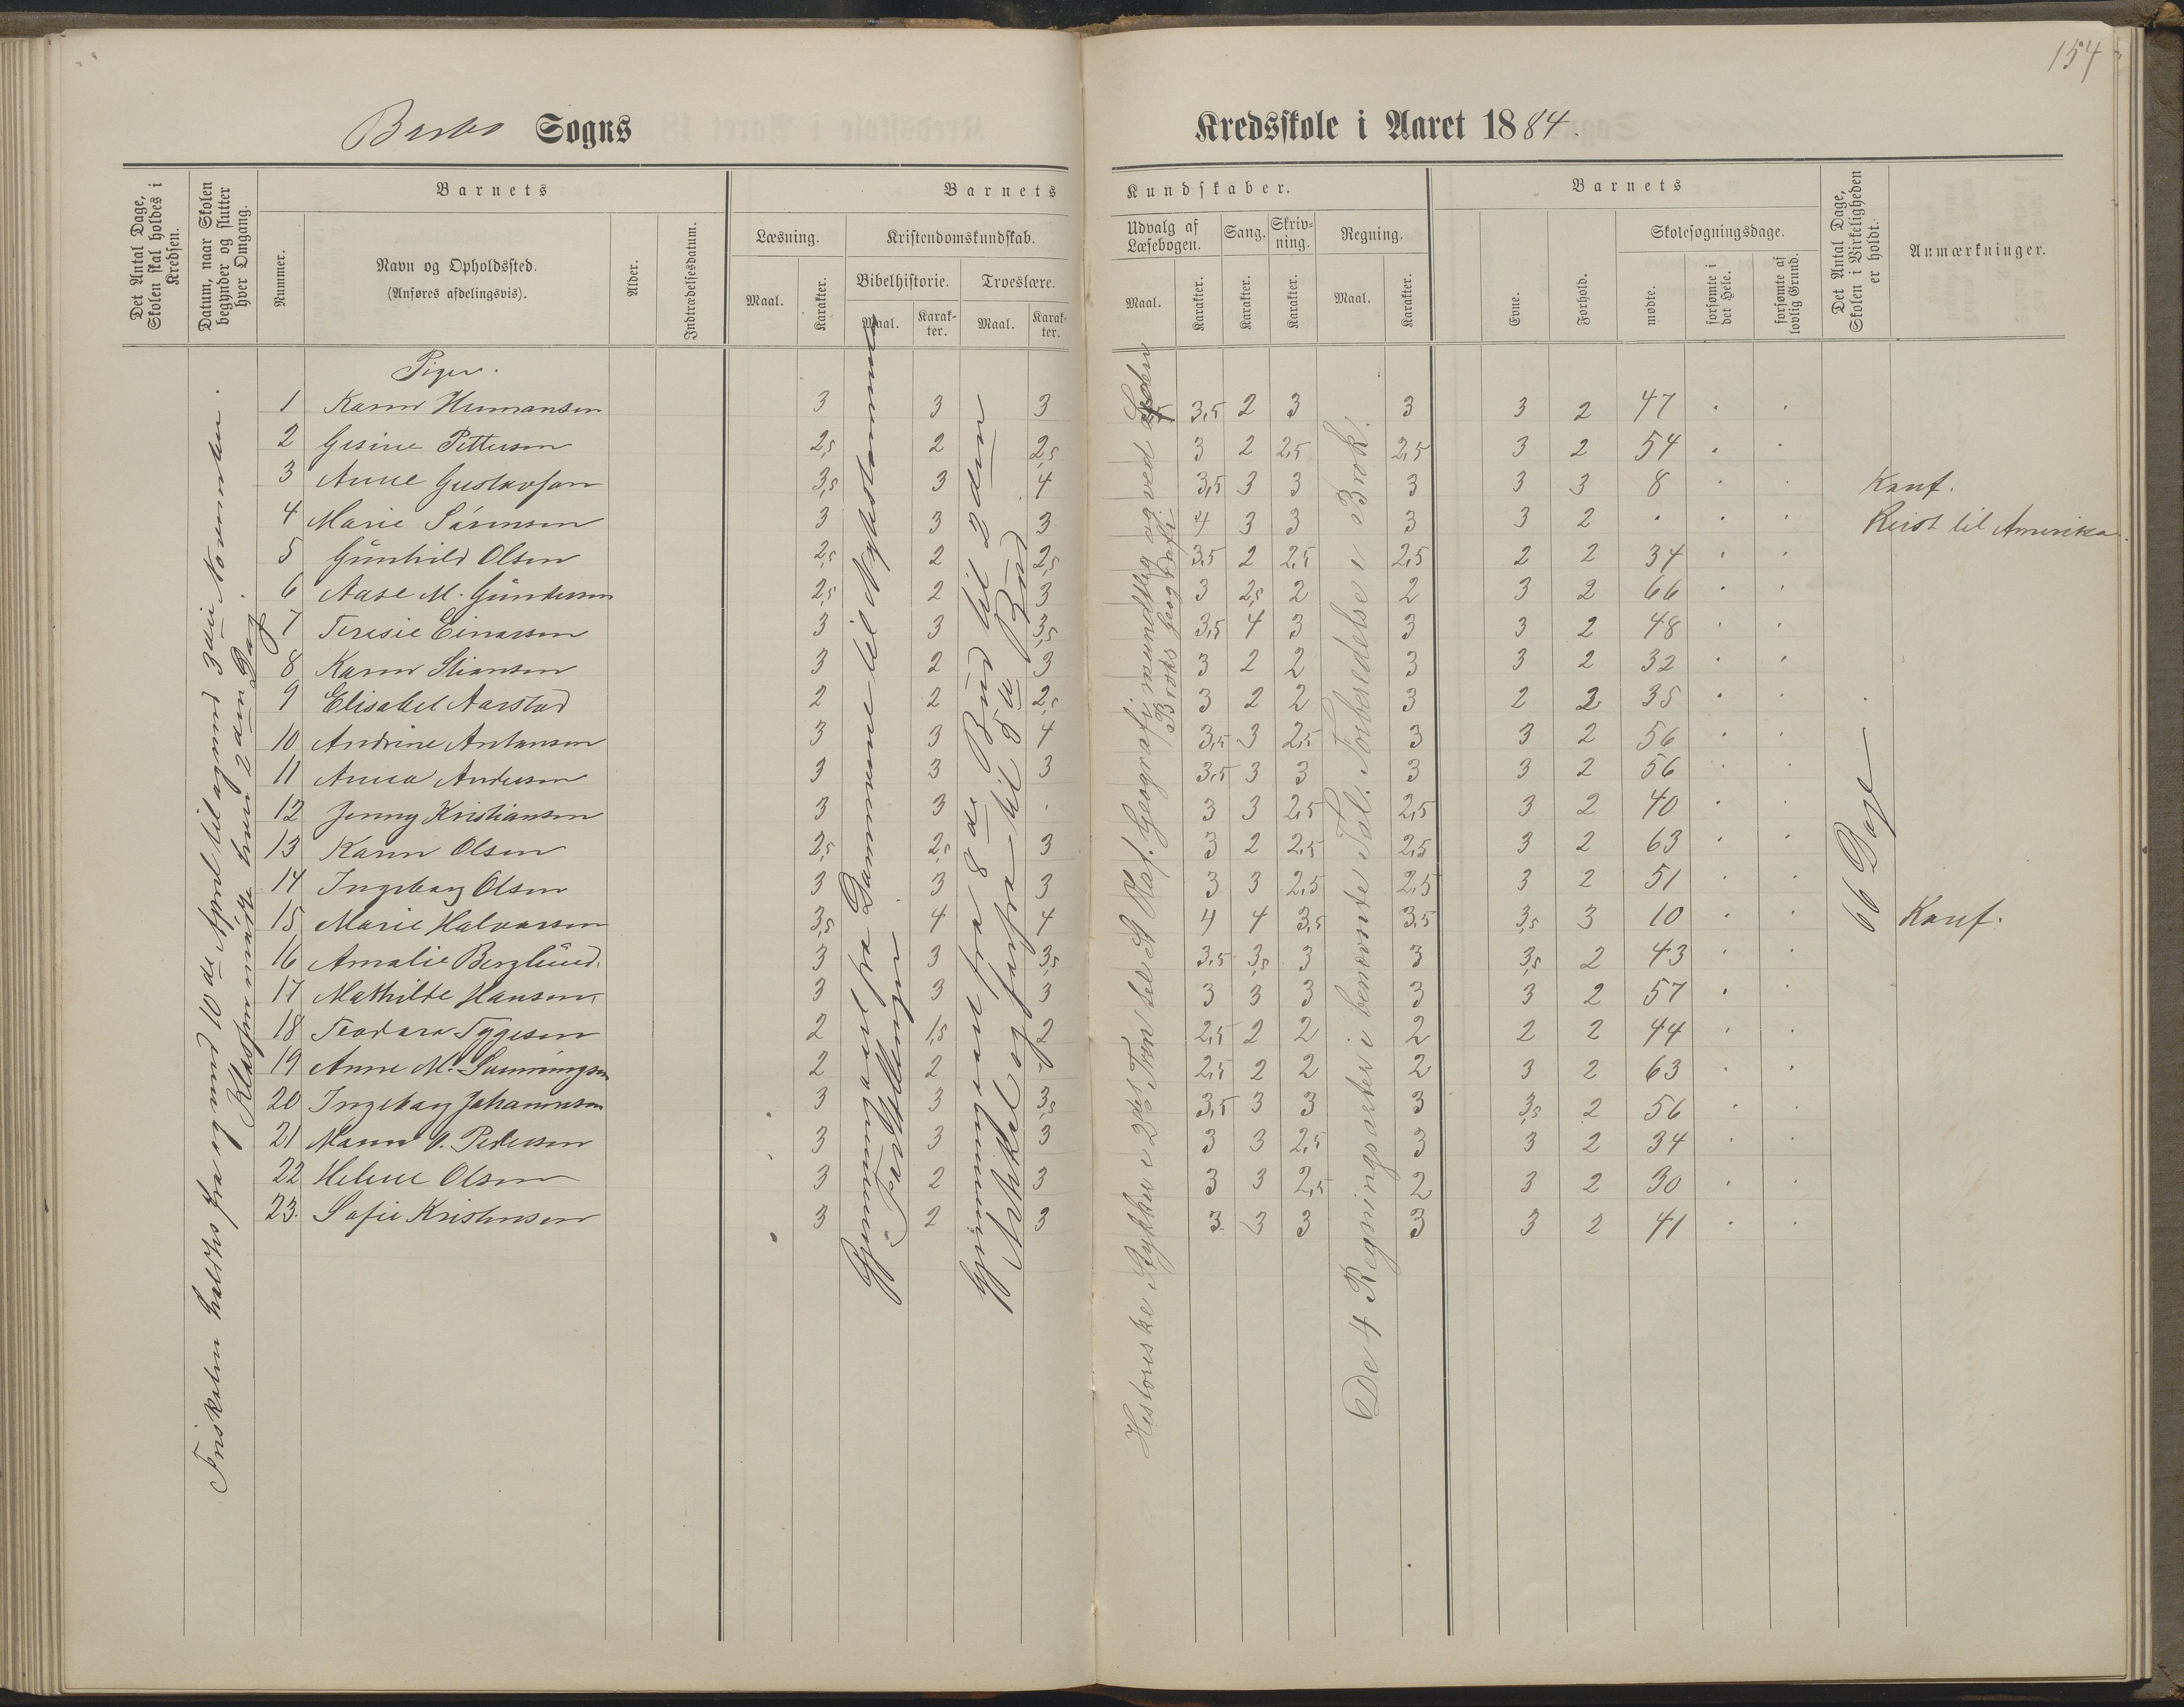 154
Barbo Sogns
Kredsskole i Aaret 1884.
Det Antal Dage, Skolen skal holdes i Kredsen.
Datum, naar Skolen begynder og slutter hver Omgang.
Barnets
Nummer.
Navn og Opholdssted.
(Anføres afdelingsvis).
Alder.
Indtrædelsesdatum.
Barnets Kundskaber.
Læsning.
Maal. Karakter.
Kristendomskundskab.
Bibelhistorie. Troeslære.
Maal. Karakter. Maal. Karakter.
Udvalg af Læsebogen.
Maal. Karakter.
Sang. Karakter.
Skrivning. Karakter.
Regning.
Maal. Karakter.
Barnets
Evne. Forhold.
Skolesøgningsdage.
mødte. forsømte i det Hele. forsømte af lovlig Grund.
Det Antal Dage, Skolen i Virkeligheden er holdt.
Anmærkninger.
Friskolen holdtes fra og med 10de April til og med 3die November.
Klassen hver 2den Dag.
Piger.
1 Karen Hermansen 3 3 3 3,5 2 3 3 3 2 47 . .
2 Gesine Pettersen 2,5 2 2,5 3 2 2,5 2,5 3 2 54 . .
3 Anne Gustavsen 3,5 3 4 3,5 3 3 3 3 3 8 . . Konf.
4 Marie Sørensen 3 3 3 4 3 3 3 3 2 . . . Reist til Amerika.
5 Gunhild Olsen 2,5 2 2,5 3,5 2 2,5 2,5 2 2 34 . .
6 Aase M. Gundersen 2,5 2 3 3 2,5 2 2 3 2 66 . .
7 Teresie Einarsen 3 3 3,5 3,5 4 3 3 3 2 48 . .
8 Karen Stiansen 3 2 3 3 2 2 3 3 2 32 . .
9 Elisabet Aarstad 2 2 2,5 3 2 2 3 2 2 35 . .
10 Andrine Antonsen 3 3 4 3,5 3 2,5 3 3 2 56 . .
11 Anna Andersen 3 3 3 3,5 3 3 3 3 2 56 . .
12 Jenny Kristiansen 3 3 . 3 3 2,5 2,5 3 2 40 . .
13 Karen Olsen 2,5 2,5 3 3 2 2,5 2,5 3 2 63 . .
14 Ingeborg Olsen 3 3 3 3 3 2,5 2,5 3 2 51 . .
15 Marie Halvorsen 3,5 4 4 4 4 3,5 3,5 3,5 3 10 . . Konf.
16 Amalie Berglund. 3 3 3,5 3,5 3,5 3 3 3,5 2 43 . .
17 Mathilde Hansen 3 3 3 3 3 3 3 3 2 57 . .
18 Teodora Tygesen 2 1,5 2 2,5 2 2 2 2 2 44 . .
19 Anne M. 2 2 2,5 2 2 2 3 2 63 . .
20 Ingeborg Johannesen 3 3 3,5 3,5 3 3 3 3,5 2 56 . .
21 Maren V. Pedersen 3 3 3 3 3 2,5 3 3 2 34 . .
22 Helene Olsen 3 2 3 3 3 2,5 2 3 2 30 . .
23. Sofie Kristensen 3 2 3 3 3 3 3 3 2 41 . .
Gjennemgaaet fra Dommerne til Nytestamente
Fortællinger
Gjennemgaaet fra 8de Bud til 2den
Artikel og forfra til 5te Bud
Historiske Stykker i 2det Trin til St Olaf. Geografi mundtlig og ved
Broks Geografi
De 4 Regningsarter i benævnte Tal. Forberedelse i Brøk.
66 Dage